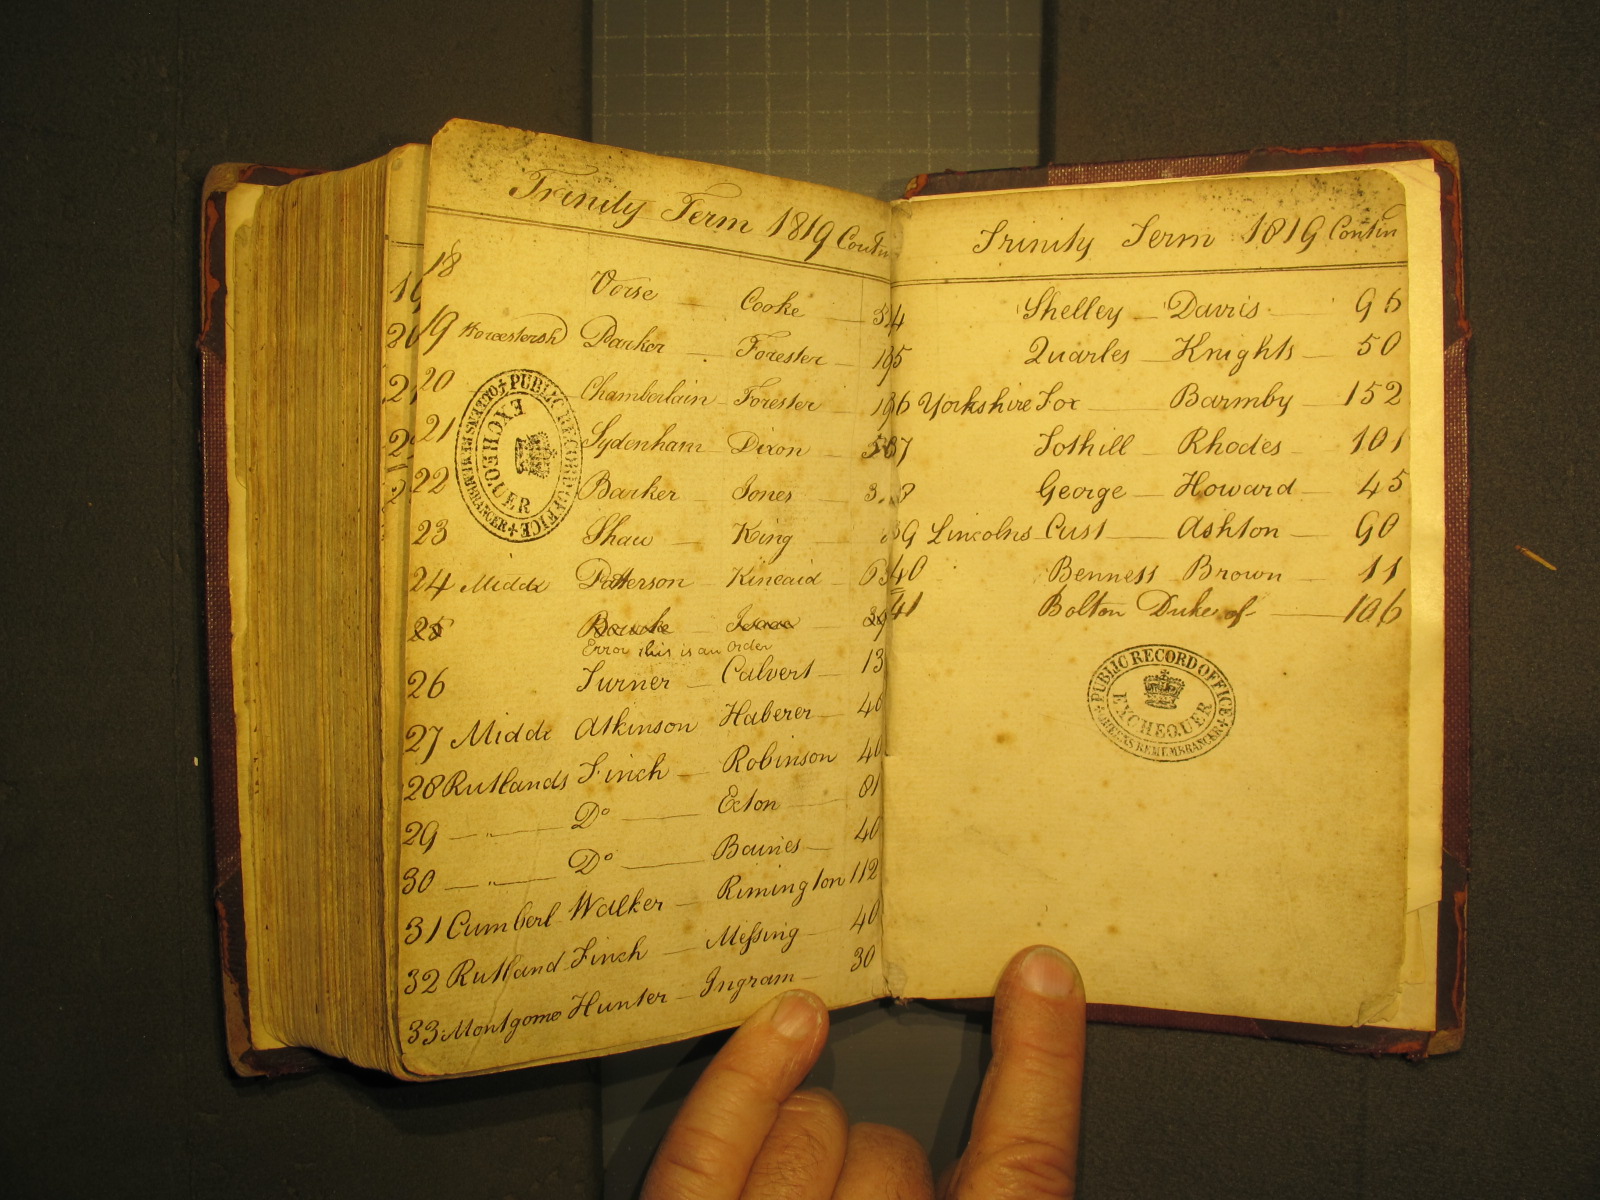 Trinity Term 1819 Contin
18 Verse Cooke
19 Worcestersh Parker Forester
20 Chamberlain Forester
21 Sydenham Dixon
22 Barker Jones
23 Shaw King
24 Middx Patterson Kincaid
25 Bourke Isaac 39
Error this is an Order
26 Turner Calvert 13
27 Middx Atkinson Haberer 40
28 Rutlands Finch Robinson 40
29 " Do Exton 81
30 " Do Baines 40
31 Cumberl Walker Rimington 112
32 Rutland Finch Messing 40
33 Montgome Hunter Ingram 30
PUBLIC RECORD OFFICE
EXCHEQUER
QUEENS REMEMBRANCER
Trinity Term 1819 Contin
34 Shelley Davis 96
35 Quarles Knights 50
36 Yorkshire Fox Barmby 152
37 Tothill Rhodes 101
38 George Howard 45
39 Lincolns Cust Ashton 90
40 Benness Brown 11
41 Bolton Duke of 106
PUBLIC RECORD OFFICE
EXCHEQUER
QUEENS REMEMBRANCER